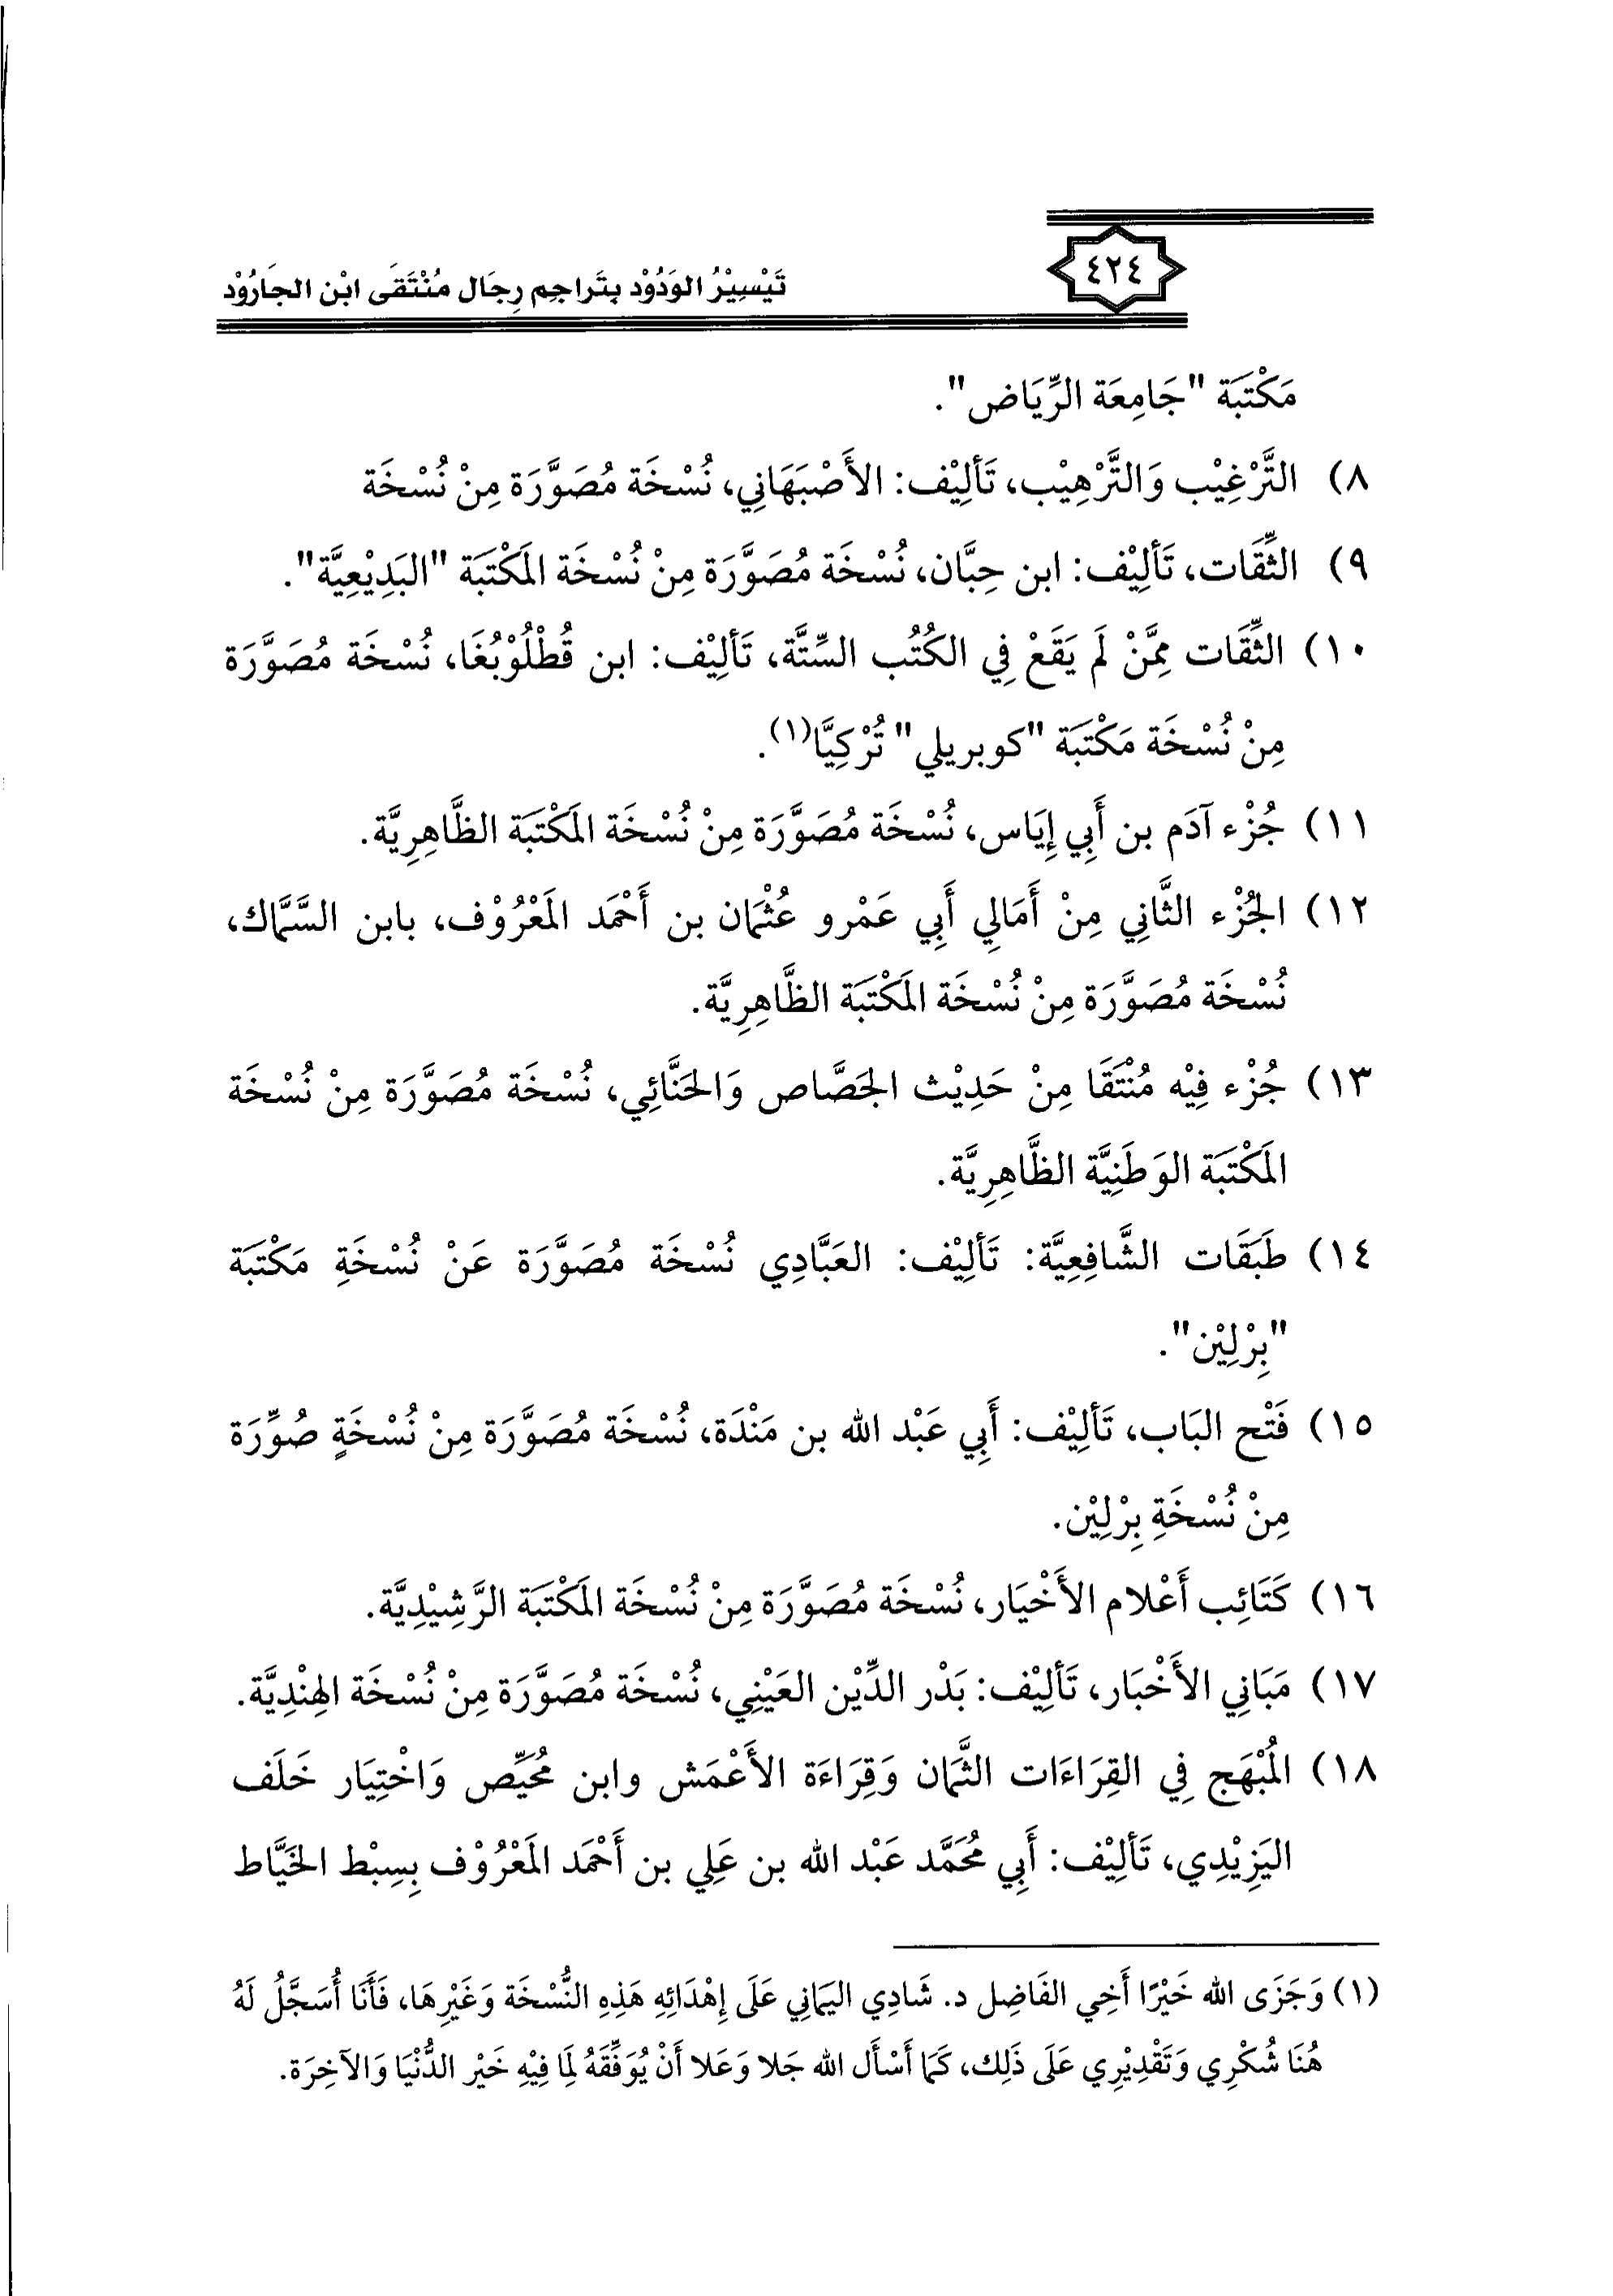 ٤٢٤
تَيْسِيْرُ الوَدُوْد بِتَراجِم رِجَال مُنْتَقَى ابْن الجَارُوْد
مَكْتَبَة "جَامِعَة الرِّيَاض".
٨) التَّرْغِيْب وَالتَّرْهِيْب، تَأْلِيْف: الأَصْبَهَانِي، نُسْخَة مُصَوَّرَة مِنْ نُسْخَة
٩) الثِّقَات، تَأْلِيْف: ابن حِبَّان، نُسْخَة مُصَوَّرَة مِنْ نُسْخَة المَكْتَبَة "البَدِيْعِيَّة".
١٠) الثِّقَات مِمَّنْ لَم يَقَعْ فِي الكُتُب السِّتَّة، تَأْلِيْف: ابن قُطْلُوْبُغَا، نُسْخَة مُصَوَّرَة
مِنْ نُسْخَة مَكْتَبَة "كوبريلي" تُرْكِيَّا(١).
١١) جُزْء آدَم بن أَبِي إِيَاس، نُسْخَة مُصَوَّرَة مِنْ نُسْخَة المَكْتَبَة الظَّاهِرِيَّة.
١٢) الجُزْء الثَّانِي مِنْ أَمَالِي أَبِي عَمْرو عُثْمَان بن أَحْمَد المَعْرُوْف، بابن السَّمَّاك،
نُسْخَة مُصَوَّرَة مِنْ نُسْخَة المَكْتَبَة الظَّاهِرِيَّة.
١٣) جُزْء فِيْه مُنْتَقَا مِنْ حَدِيْث الجَصَّاص وَالحَنَّائِي، نُسْخَة مُصَوَّرَة مِنْ نُسْخَة
المَكْتَبَة الوَطَنِيَّة الظَّاهِرِيَّة.
١٤) طَبَقَات الشَّافِعِيَّة: تَأْلِيْف: العَبَّادِي نُسْخَة مُصَوَّرَة عَنْ نُسْخَةِ مَكْتَبَة
"بِرْلِيْن".
١٥) فَتْح البَاب، تَأْلِيْف: أَبِي عَبْد الله بن مَنْدَة، نُسْخَة مُصَوَّرَة مِنْ نُسْخَةٍ صُوِّرَة
مِنْ نُسْخَةِ بِرْلِيْن.
١٦) كَتَائِب أَعْلام الأَخْيَار، نُسْخَة مُصَوَّرَة مِنْ نُسْخَة المَكْتَبَة الرَّشِيْدِيَّة.
١٧) مَبَانِي الأَخْبَار، تَأْلِيْف: بَدْر الدِّيْن العَيْنِي، نُسْخَة مُصَوَّرَة مِنْ نُسْخَة الهِنْدِيَّة.
١٨) المُبْهَج فِي القِرَاءَات الثَّمَان وَقِرَاءَة الأَعْمَش وابن مُحَيِّص وَاخْتِيَار خَلَف
اليَزِيْدِي، تَأْلِيْف: أَبِي مُحَمَّد عَبْد الله بن عَلِي بن أَحْمَد المَعْرُوْف بِسِبْط الخَيَّاط
(١) وَجَزَى الله خَيْرًا أَخِي الفَاضِل د. شَادِي اليَمَانِي عَلَى إِهْدَائِهِ هَذِهِ النُّسْخَة وَغَيْرِهَا، فَأَنَا أُسَجَّلُ لَهُ
هُنَا شُكْرِي وَتَقْدِيْرِي عَلَى ذَلِك، كَمَا أَسْأَل الله جَلا وَعَلا أَنْ يُوَفِّقَهُ لِمَا فِيْهِ خَيْر الدُّنْيَا وَالآخِرَة.